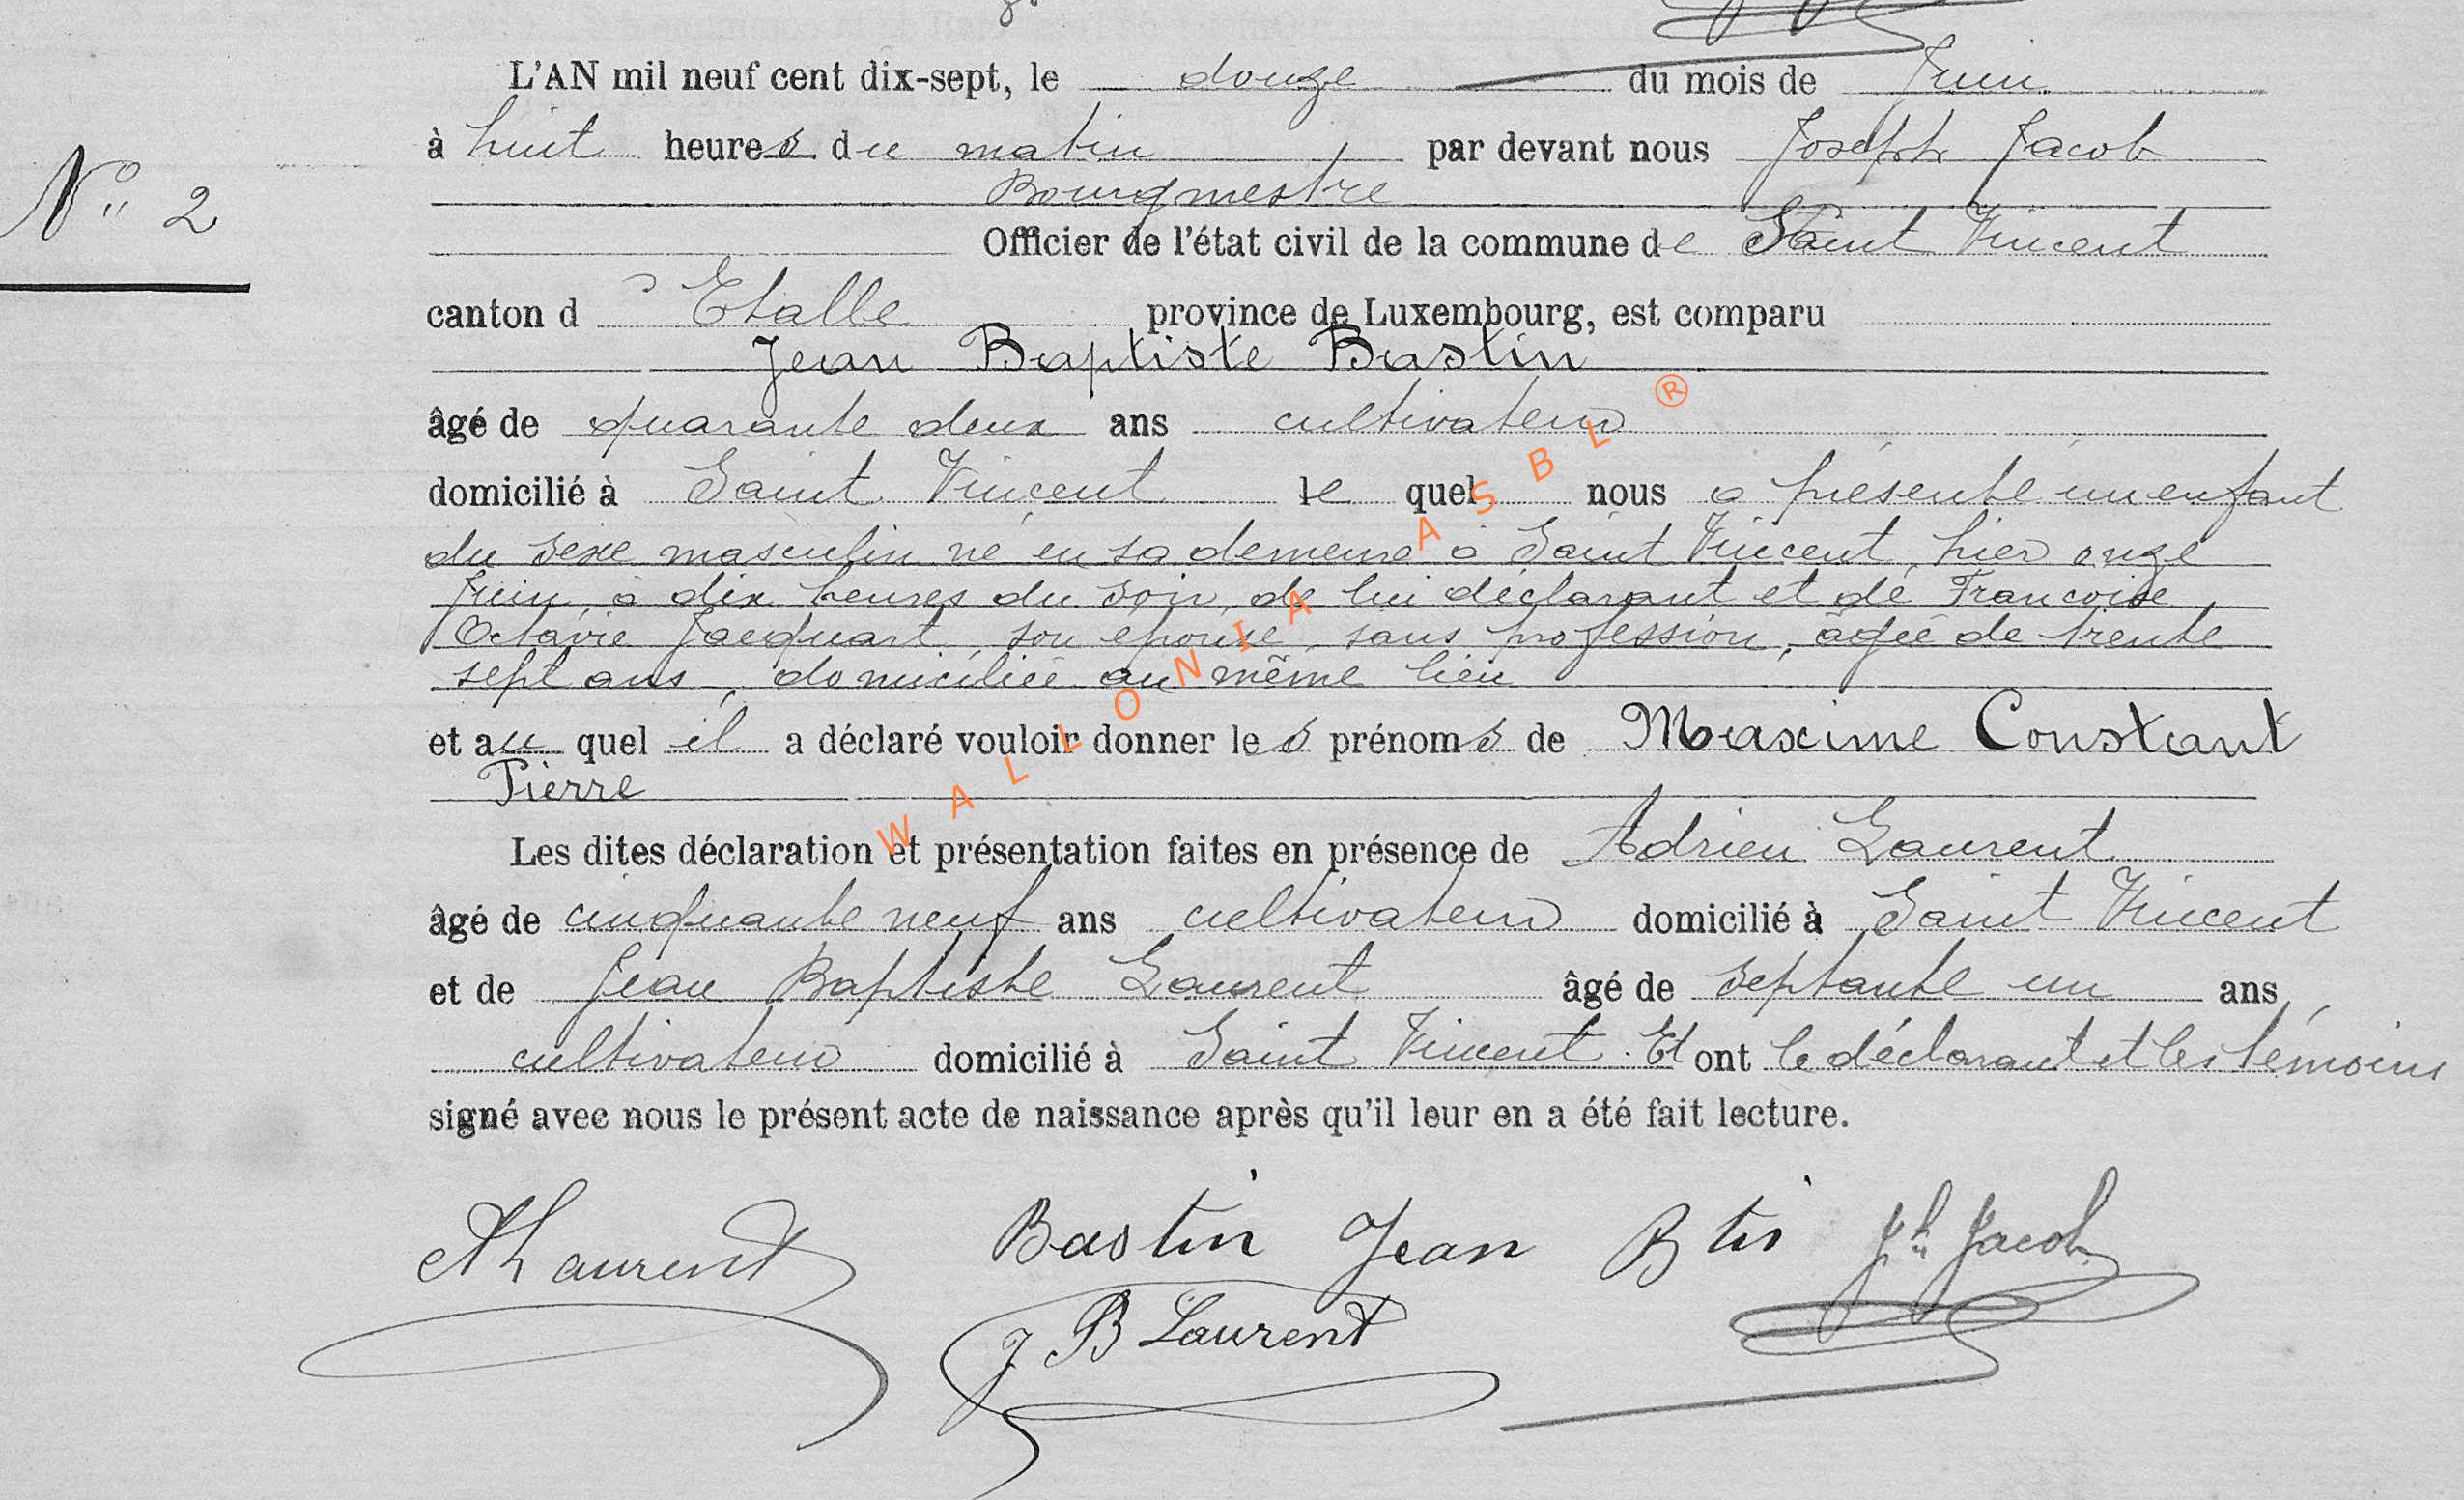 L'AN mil neuf cent dix-sept, le douze du mois de Juin
à huit heures du matin par devant nous Joseph Jacob
Bourgmestre
N° 2
Officier de l'état civil de la commune de Saint Vincent
canton d'Etalle province de Luxembourg, est comparu
Jean Baptiste Bastin
âgé de quarante deux ans cultivateur
domicilié à Saint Vincent lequel nous a présenté un enfant
du sexe masculin né en sa demeure à Saint Vincent, hier onze
Juin, à dix heures du soir, de lui déclarant et de Françoise
Octavie Jacquart, son épouse, sans profession, âgée de trente
sept ans, domiciliée au même lieu
et auquel il a déclaré vouloir donner les prénoms de Maxime Constant
Pierre
Les dites déclaration et présentation faites en présence de Adrien Laurent
âgé de cinquante neuf ans cultivateur domicilié à Saint Vincent
et de Jean Baptiste Laurent âgé de septante un ans,
cultivateur domicilié à Saint Vincent. Et ont le déclarant et les témoins
signé avec nous le présent acte de naissance après qu'il leur en a été fait lecture.
A Laurent Bastin Jean Btis Jh Jacob
J B Laurent
WALLONIA ASBL ®